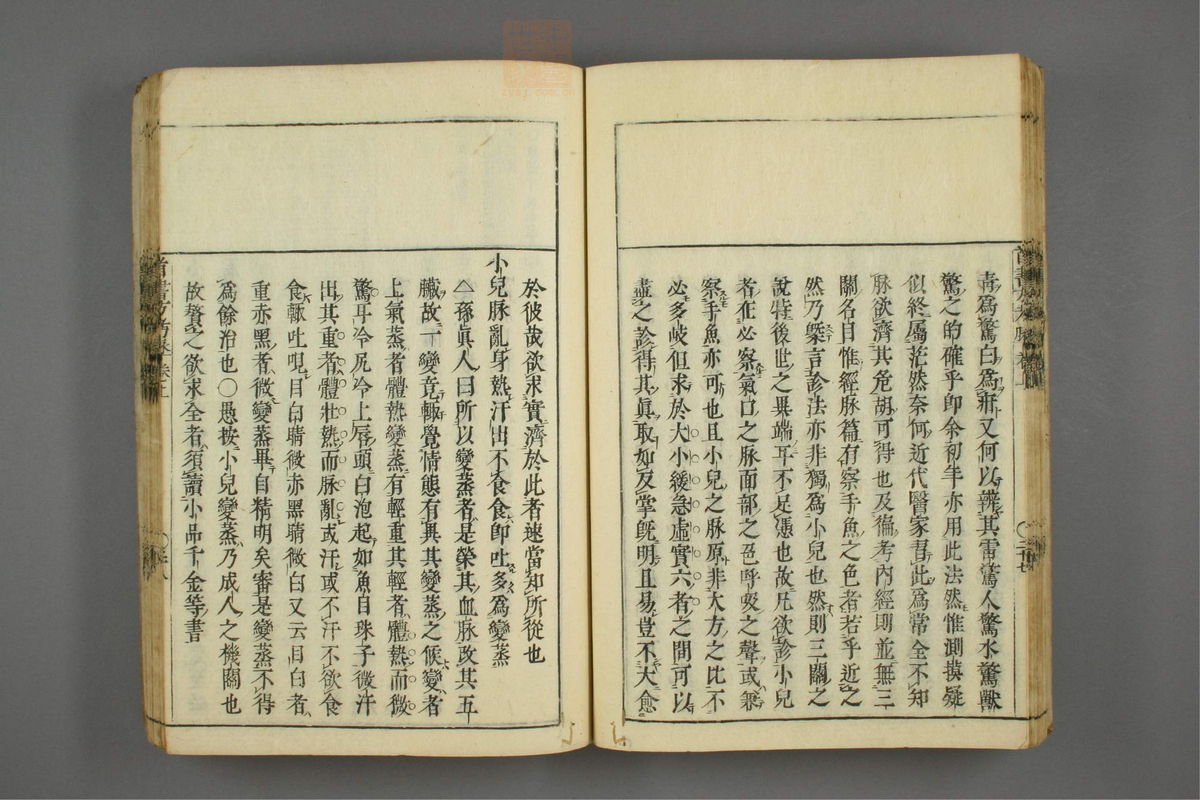 靑爲驚白爲疳又何以辨其雷驚人驚水驚獸
驚之的確乎卽余初年亦用此法然惟測摸疑
似終屬茫然奈何近代醫家習此爲常全不知
脉欲濟其危胡可得也及徧考內經則並無三
關名目惟經脉篇有察手魚之色者若乎近之
然乃槩言診法亦非獨爲小兒也然則三關之
說特後世之異端耳不足憑也故凡欲診小兒
者在必察氣口之脉面部之色呼吸之聲或兼
察手魚亦可也且小兒之脉原非大方之比不
必多岐但求於大小緩急虛實六者之間可以
盡之診得其眞取如反掌旣明且易豈不大愈
於彼哉欲求實濟於此者速當知所從也
小兒脉亂身熱汗出不食食卽吐多爲變蒸
△孫眞人曰所以變蒸者是榮其血脉改其五
臟故一變竟輒覺情態有異其變蒸之候變者
上氣蒸者體熱變蒸有輕重其輕者體熱而微
驚耳冷尻冷上唇頭白泡起如魚目珠子微汗
出其重者體壯熱而脉亂或汗或不汗不欲食
食輒吐哯目白睛微赤黑睛微白又云目白者
重赤黑者微變蒸畢自精明矣審是變蒸不得
爲餘治也〇愚按小兒變蒸乃成人之機關也
故贅之欲求全者須讀小品千金等書